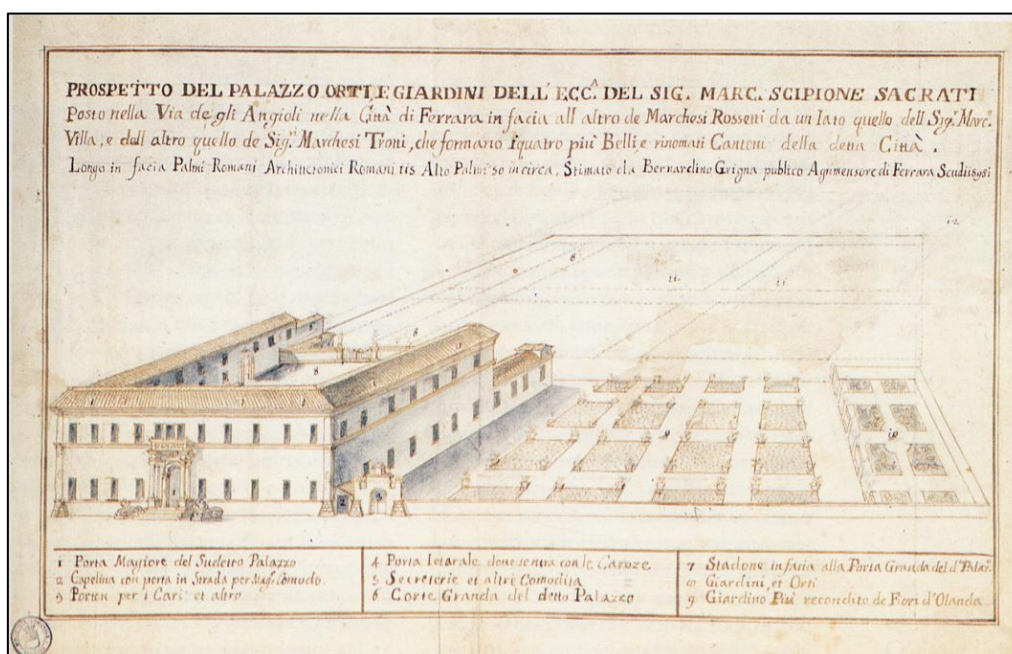 PROSPETTO DEL PALAZZO ORTI, E GIARDINI DELL' ECC.A DEL SIG. MARC. SCIPIONE SACRATI
Posto nella Via de gli Angioli nella Città di Ferrara in facia all altro de Marchesi Rossetti da un lato quello dell Sig.r Marc.e
Villa, e dall altro quello de Sig.ri Marchesi Troni, che formano i quatro più Belli, e rinomati Cantoni della detta Città.
Longo in facia Palmi Romani Architettonici Romani Alto Palmi 50 incirca, Stimato da Bernardino Grigna publico Agrimensore di Ferrara Scudi
12
6
11
11
6
8
9
10
1 Porta Magiore del Sudetto Palazzo
2 Capelina con porta in Strada per Mag.r Comodo
3 Porton per i Cari et altro
4 Porta laterale dove sentra con le Caroze
5 Secreterie et altre Comodita
6 Corte Granda del detto Palazzo
7 Stadone in facia alla Porta Granda del d.o Palaz.o
8 Giardini, et Orti
9 Giardino Più recondito de Fiori d'Olanda